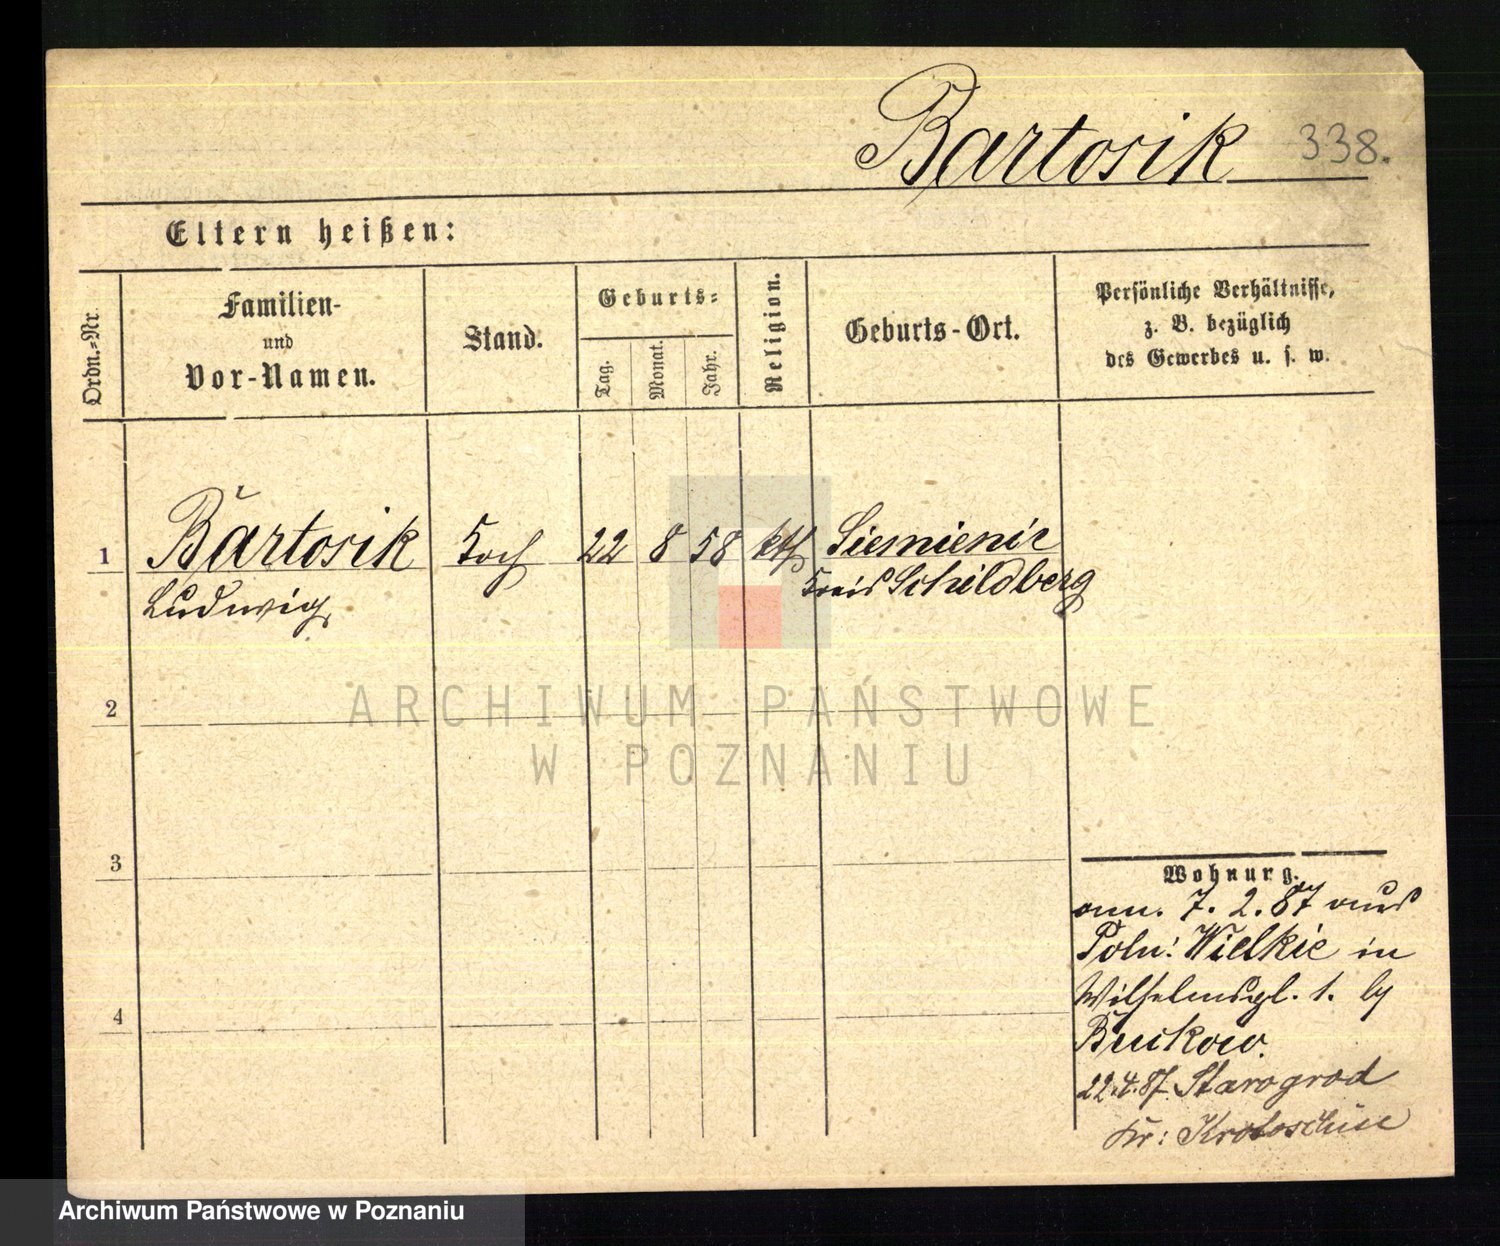 Bartosik 338.
Eltern heißen:
Ordn.=Nr.
Familien-
und
Vor-Namen.
Stand.
Geburts=
Tag.
Monat.
Jahr.
Religion.
Geburts-Ort.
Persönliche Verhältnisse,
z. B. bezüglich
des Gewerbes u. s. w.
1 Bartosik Koch 22 8 58 kth Siemienic
Ludwig, Kreis Schildberg
ARCHIWUM PAŃSTWOWE
W POZNANIU
2
3
4
Wohnung.
7. 2. 87 aus
Poln: Wielkie in
Wilhelmspl. 1. by
Buckow.
22.4.87 Starogrod
Kr: Krotoschin
Archiwum Państwowe w Poznaniu